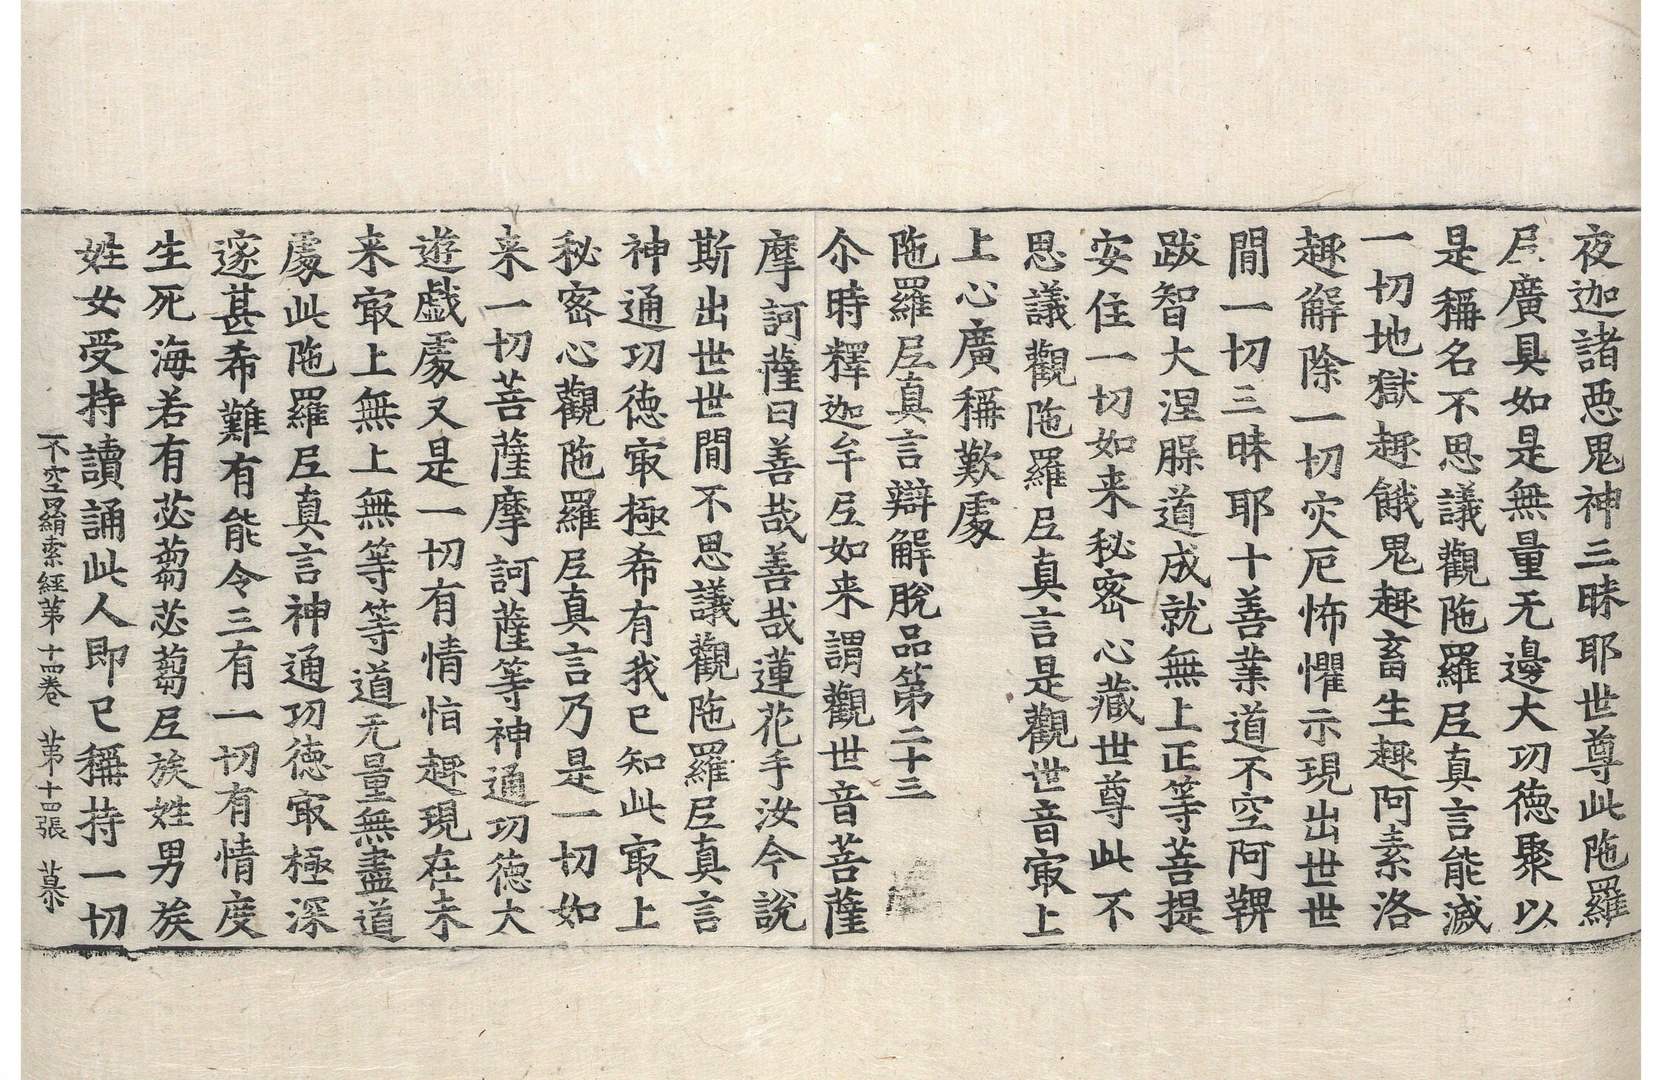 夜迦諸惡鬼神三昧耶世尊此陁羅
尼廣具如是無量无邊大功徳聚以
是稱名不思議觀陁羅尼真言能滅
一切地獄趣餓鬼趣畜生趣阿素洛
趣解除一切灾厄怖懼示現出世世
間一切三昧耶十善業道不空阿鞞
跋智大涅槃道成就無上正等菩提
安住一切如来秘密心藏世尊此不
思議觀陁羅尼真言是觀世音㝡上
上心廣稱歎䖏
陁羅尼真言辯解脫品第二十三
尒時釋迦牟尼如来謂觀世音菩薩
摩訶薩曰善哉善哉蓮花手汝今說
斯出世世間不思議觀陁羅尼真言
神通功徳㝡極希有我已知此㝡上
秘密心觀陁羅尼真言乃是一切如
来一切菩薩摩訶薩等神通功徳大
遊戲䖏又是一切有情怕趣現在未
来㝡上無上無等等道无量無盡道
䖏此陁羅尼真言神通功徳㝡極深
邃甚希難有能令三有一切有情度
生死海若有苾蒭苾蒭尼族姓男族
姓女受持讀誦此人即已稱持一切
不空羂索經苐十四卷 苐十四張 慕